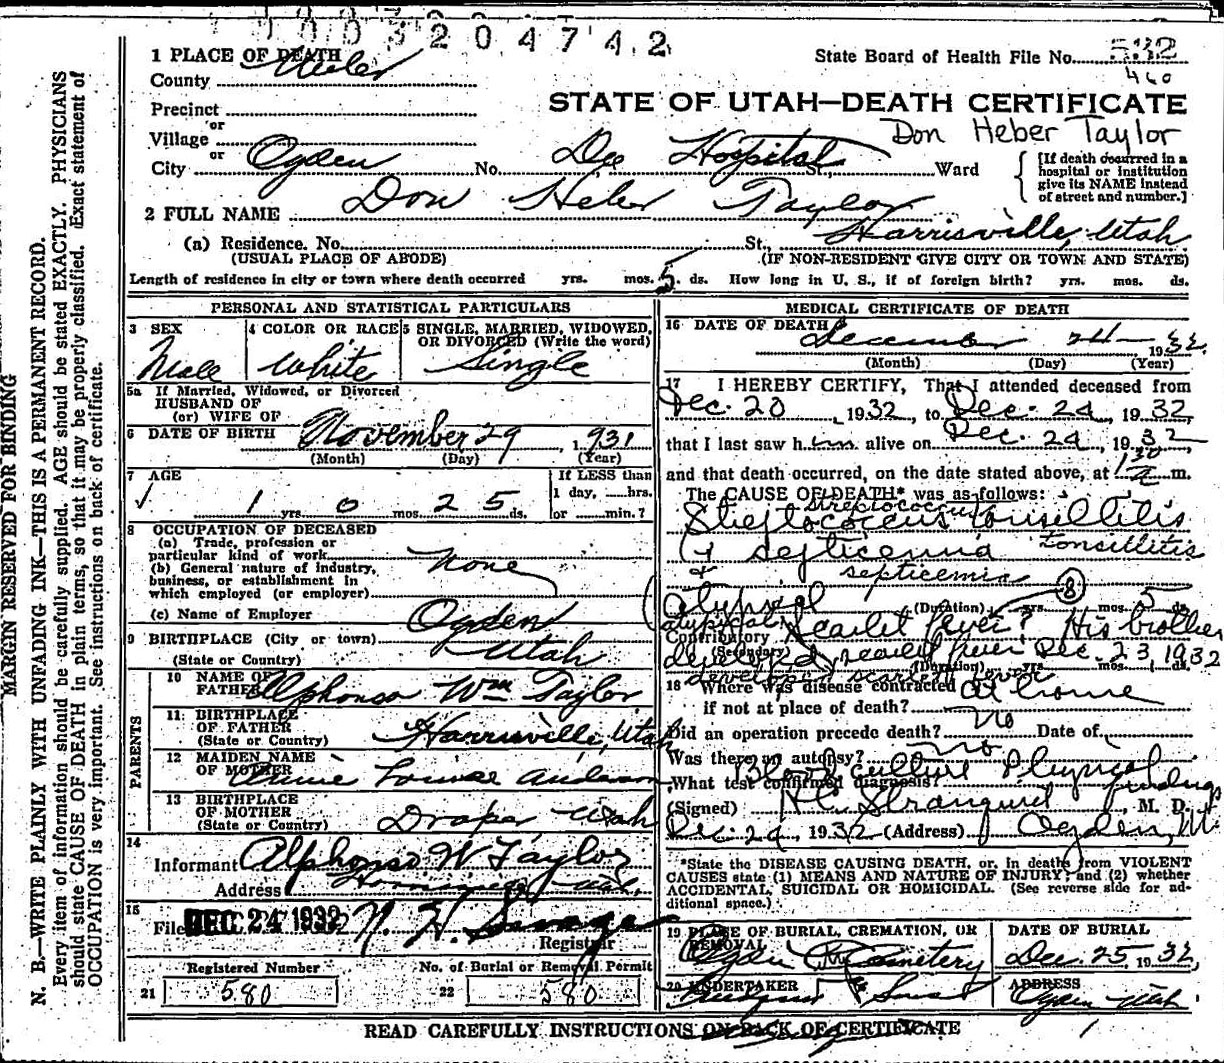 0003204742
1 PLACE OF DEATH
State Board of Health File No. 532
County Weber
460
STATE OF UTAH—DEATH CERTIFICATE
Precinct
or
Don Heber Taylor
Village
or
City Ogden No. Dee Hospital St., Ward
[If death occurred in a hospital or institution give its NAME instead of street and number.]
2 FULL NAME Don Heber Taylor
(a) Residence. No. St., Harrisville, Utah
(USUAL PLACE OF ABODE) (IF NON-RESIDENT GIVE CITY OR TOWN AND STATE)
Length of residence in city or town where death occurred yrs. mos. 5 ds. How long in U. S., if of foreign birth? yrs. mos. ds.
PERSONAL AND STATISTICAL PARTICULARS
3 SEX 4 COLOR OR RACE 5 SINGLE, MARRIED, WIDOWED, OR DIVORCED (Write the word)
Male White Single
5a If Married, Widowed, or Divorced
HUSBAND OF
(or) WIFE OF
6 DATE OF BIRTH November 29 1931
(Month) (Day) (Year)
7 AGE If LESS than
1 day, hrs.
1 yrs. 0 mos. 25 ds. or min.?
8 OCCUPATION OF DECEASED
(a) Trade, profession or
particular kind of work
None
(b) General nature of industry,
business, or establishment in
which employed (or employer)
(c) Name of Employer
9 BIRTHPLACE (City or town) Ogden
(State or Country) Utah
PARENTS
10 NAME OF FATHER Alphonso Wm Taylor
11 BIRTHPLACE OF FATHER (State or Country) Harrisville, Utah
12 MAIDEN NAME OF MOTHER Annie Louise Anderson
13 BIRTHPLACE OF MOTHER (State or Country) Draper Utah
14
Informant Alphonso W Taylor
Address Utah
15
Filed DEC 24 1932 N. H. Savage
Registrar
Registered Number No. of Burial or Removal Permit
21 580 22 580
MEDICAL CERTIFICATE OF DEATH
16 DATE OF DEATH December 24 1932
(Month) (Day) (Year)
17 I HEREBY CERTIFY, That I attended deceased from
Dec. 20, 1932, to Dec. 24, 1932
that I last saw him alive on Dec. 24, 1932
and that death occurred, on the date stated above, at 1 30 m.
The CAUSE OF DEATH* was as follows:
Streptococcus
Streptococcus tonsillitis
& septicemia tonsillitis
& septicemia
8
(atypical (Duration) yrs. mos. 5 ds.
atypical
Contributory Scarlet fever? His brother
(Secondary)
developed scarlet fever Dec. 23, 1932
(Duration) yrs. mos. ds.
developed scarlet fever
18 Where was disease contracted at home
if not at place of death?
Did an operation precede death? No Date of
Was there an autopsy? No
What test confirmed diagnosis? Blood culture Physical findings
(Signed) Stranquist, M. D.
Dec. 24, 1932 (Address) Ogden, Ut.
*State the DISEASE CAUSING DEATH, or, in deaths from VIOLENT
CAUSES state (1) MEANS AND NATURE OF INJURY; and (2) whether
ACCIDENTAL, SUICIDAL OR HOMICIDAL. (See reverse side for additional space.)
19 PLACE OF BURIAL, CREMATION, OR REMOVAL DATE OF BURIAL
Ogden Cemetery Dec. 25, 1932
20 UNDERTAKER ADDRESS
& Sons Ogden Utah
READ CAREFULLY INSTRUCTIONS ON BACK OF CERTIFICATE
MARGIN RESERVED FOR BINDING
N. B.—WRITE PLAINLY WITH UNFADING INK—THIS IS A PERMANENT RECORD.
Every item of information should be carefully supplied. AGE should be stated EXACTLY. PHYSICIANS
should state CAUSE OF DEATH in plain terms, so that it may be properly classified. Exact statement of
OCCUPATION is very important. See instructions on back of certificate.